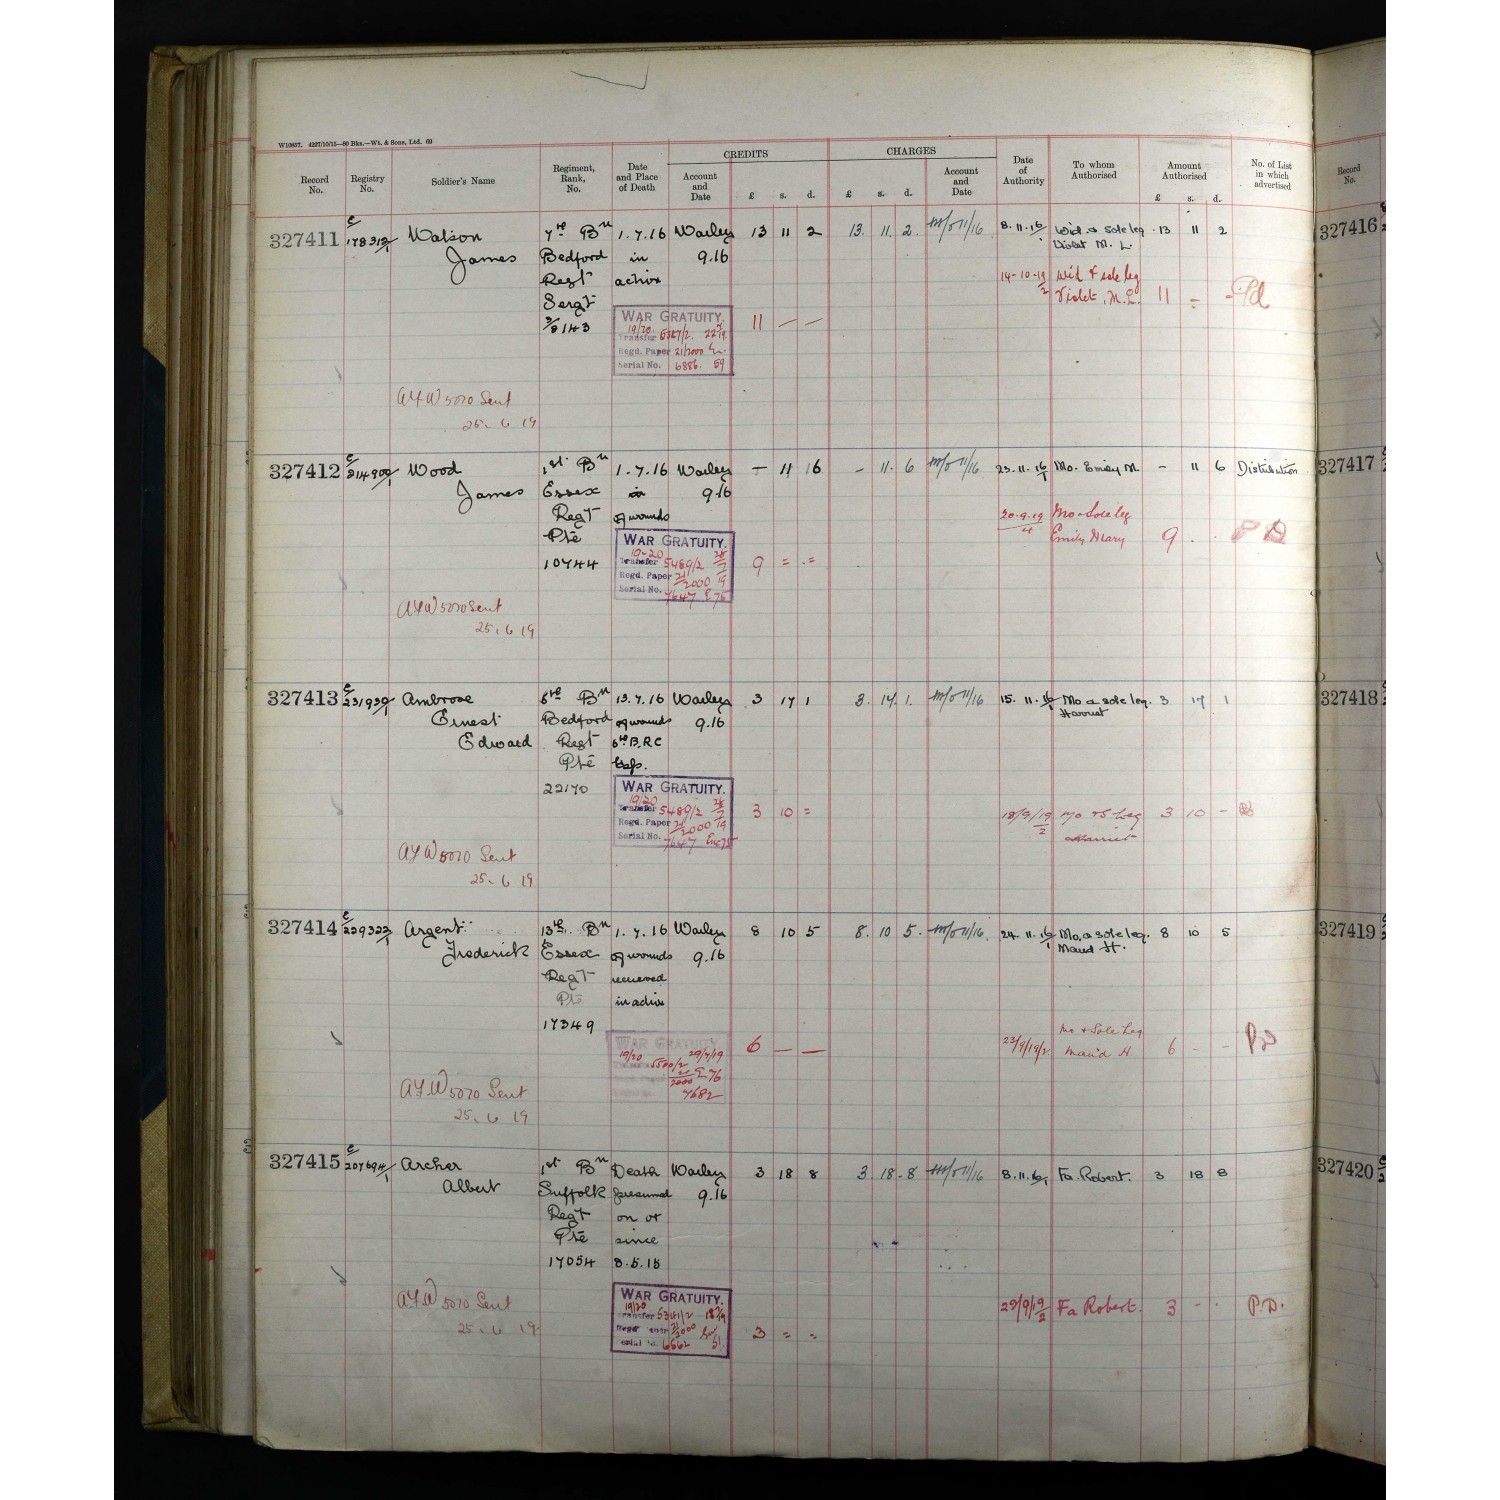 W10857. 4227/10/15—80 Bks.—Wt. & Sons, Ltd. 69
CREDITS CHARGES
Record No. Registry No. Soldier's Name Regiment, Rank, No. Date and Place of Death Account and Date £ s. d. £ s. d. Account and Date Date of Authority To whom Authorised Amount Authorised £ s. d. No. of List in which advertised Record No.
327411 E/178312/1 Watson 7th Bn 1.7.16 Warley 13 11 2 13. 11. 2. 11/16 8.11.16 Wid. & sole leg 13 11 2 327416
James Bedford in 9.16 Violet M. L.
Regt action 14-10-19/2 Wid & sole leg
Sergt Violet, M.L. 11 - - Pd
3/8143 WAR GRATUITY. 11 — —
19/20
Transfer 5387/2 22/7
Regd. Paper 21/2000
Serial No. 6886. 59
AFW 5070 Sent
25. 6 19
327412 E/214900/1 Wood 1st Bn 1.7.16 Warley - 11 6 - 11. 6 11/16 23.11.16/1 Mo. Emily M - 11 6 Distribution 327417
James Essex in 9.16
Regt of wounds 20.9.19/4 Mo & Sole leg
Pte Emily Mary 9 . . PD
10744 WAR GRATUITY. 9 = =
19-20
Transfer 5489/2
Regd. Paper 21/2000 19
Serial No. 7647 E75
AFW 5070 Sent
25. 6 19
327413 E/231939/1 Ambrose Bn 13.7.16 Warley 3 17 1 3. 17. 1. 11/16 15. 11. 16/1 Mo & sole leg. 3 17 1 327418
Ernest Bedford of wounds 9.16 Harriet
Edward Regt B.R.C
Pte Hosp.
22170 WAR GRATUITY. 3 10 = 18/9/19/2 Mo & S Leg 3 10 -
19/20 Harriet
Transfer 5489/2
Regd. Paper 21/2000 19
Serial No. 7647 Enc75
AFW 5070 Sent
25. 6 19
327414 E/229322/1 Argent 13th Bn 1.7.16 Warley 8 10 5 8. 10 5. 11/16. 24.11.16/1 Mo. & sole leg. 8 10 5 327419
Frederick Essex of wounds 9.16 Maud H.
Regt received
Pte in action
17349
WAR GRATUITY 6 — — 23/9/19/2 Mo & Sole Leg Maud H. 6 - - PD
19/20 29/7/19
5500/2
2000 E76
7682
AFW 5070 Sent
25. 6 19
327415 E/207694/1 Archer 1st Bn Death Warley 3 18 8 3. 18. 8 11/16 8.11.16/1 Fa. Robert. 3 18 8 327420
Albert Suffolk presumed 9.16
Regt on or
Pte since
17054 8.5.15
AFW 5070 Sent WAR GRATUITY. 29/9/19/2 Fa Robert. 3 - - P.D.
25. 6 19 19/20 3 = =
Transfer 5341/2 18/7/19
Regd. Paper 21/2000
Serial No. 6662 51